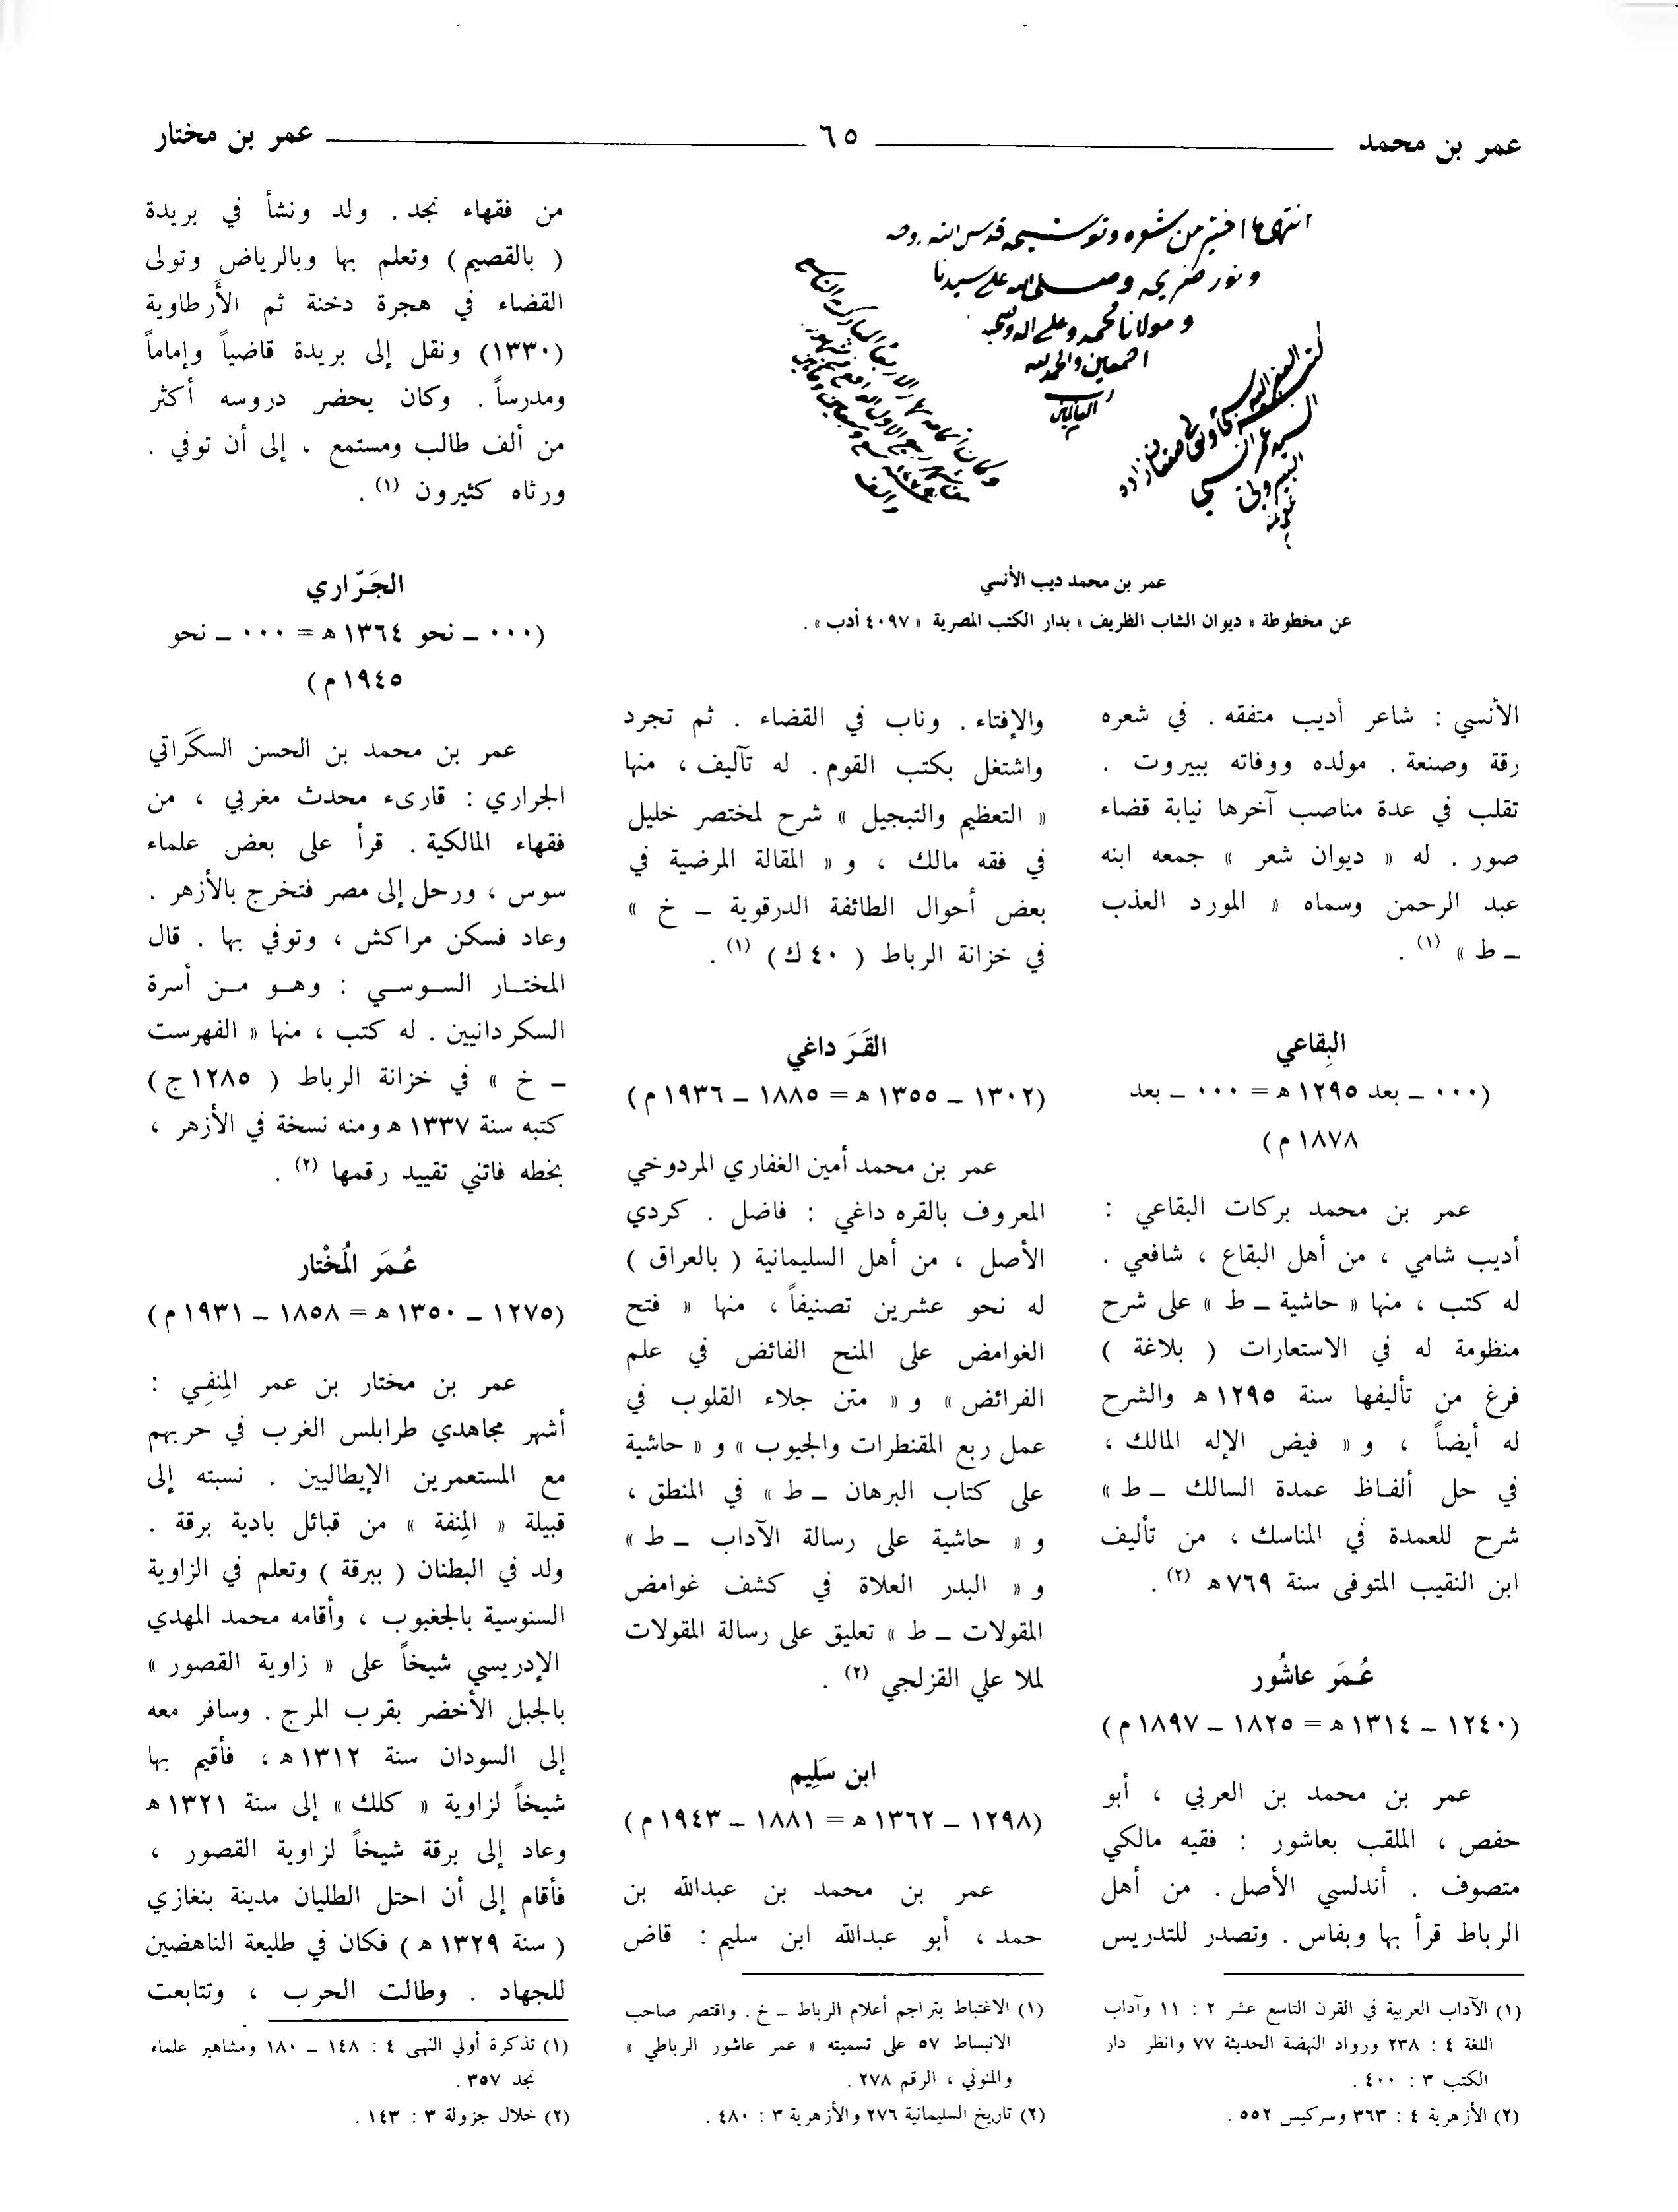 عمر بن محمد
٦٥
عمر بن مختار
ومولانا محمد وعلى اله وصحبه
عمر بن محمد ديب الأنسي
عن مخطوطة « ديوان الشاب الظريف » بدار الكتب المصرية « ٤٠٩٧ أدب » .
الأنسي : شاعر أديب متفقه . في شعره
رقة وصنعة . مولده ووفاته ببيروت .
تقلب في عدة مناصب آخرها نيابة قضاء
صور . له « ديوان شعر » جمعه ابنه
عبد الرحمن وسماه « المورد العذب
ـ ط » (١) .
البِقاعي
(٠٠٠ ـ بعد ١٢٩٥ ه = ٠٠٠ ـ بعد
١٨٧٨ م)
عمر بن محمد بركات البقاعي :
أديب شامي ، من أهل البقاع ، شافعي .
له كتب ، منها « حاشية ـ ط » على شرح
منظومة له في الاستعارات ( بلاغة )
فرغ من تأليفها سنة ١٢٩٥ ه والشرح
له أيضاً ، و « فيض الإله المالك ،
في حل ألفاظ عمدة السالك ـ ط »
شرح للعمدة في المناسك ، من تأليف
ابن النقيب المتوفى سنة ٧٦٩ ه (٢) .
عُمَر عاشُور
(١٢٤٠ ـ ١٣١٤ ه = ١٨٢٥ ـ ١٨٩٧ م)
عمر بن محمد بن العربي ، أبو
حفص ، الملقب بعاشور : فقيه مالكي
متصوف . أندلسي الأصل . من أهل
الرباط قرأ بها وبفاس . وتصدر للتدريس
(١) الآداب العربية في القرن التاسع عشر ٢ : ١١ وآداب
اللغة ٤ : ٢٣٨ ورواد النهضة الحديثة ٧٧ وانظر دار
الكتب ٣ : ٤٠٠ .
(٢) الأزهرية ٤ : ٣٦٣ وسركيس ٥٥٢ .
والإفتاء . وناب في القضاء . ثم تجرد
واشتغل بكتب القوم . له تآليف ، منها
« التعظيم والتبجيل » شرح لمختصر خليل
في فقه مالك ، و « المقالة المرضية في
بعض أحوال الطائفة الدرقوية ـ خ »
في خزانة الرباط ( ٤٠ ك ) (١) .
القَرَ داغي
(١٣٠٢ ـ ١٣٥٥ ه = ١٨٨٥ ـ ١٩٣٦ م)
عمر بن محمد أمين الغفاري المردوخي
المعروف بالقره داغي : فاضل . كردي
الأصل ، من أهل السليمانية ( بالعراق )
له نحو عشرين تصنيفاً ، منها « فتح
الغوامض على المنح الفائض في علم
الفرائض » و « متن جلاء القلوب في
عمل ربع المقنطرات والجيوب » و « حاشية
على كتاب البرهان ـ ط » في المنطق ،
و « حاشية على رسالة الآداب ـ ط »
و « البدر العلاة في كشف غوامض
المقولات ـ ط » تعليق على رسالة المقولات
لملا علي القزلجي (٢) .
ابن سَلِيم
(١٢٩٨ ـ ١٣٦٢ ه = ١٨٨١ ـ ١٩٤٣ م)
عمر بن محمد بن عبدالله بن
حمد ، أبو عبدالله ابن سليم : قاض
(١) الاغتباط بتراجم أعلام الرباط ـ خ . واقتصر صاحب
الانبساط ٥٧ على تسميته « عمر عاشور الرباطي »
والمنوني ، الرقم ٢٧٨ .
(٢) تاريخ السليمانية ٢٧٦ والأزهرية ٣ : ٤٨٠ .
من فقهاء نجد . ولد ونشأ في بريدة
( بالقصيم ) وتعلم بها وبالرياض وتولى
القضاء في هجرة دخنة ثم الأَرطاوية
(١٣٣٠) ونقل إلى بريدة قاضياً وإماماً
ومدرساً . وكان يحضر دروسه أكثر
من ألف طالب ومستمع ، إلى أن توفي .
ورثاه كثيرون (١) .
الجَرّاري
(٠٠٠ ـ نحو ١٣٦٤ ه = ٠٠٠ ـ نحو
١٩٤٥ م)
عمر بن محمد بن الحسن السكَراتي
الجراري : قارىء محدث مغربي ، من
فقهاء المالكية . قرأ على بعض علماء
سوس ، ورحل إلى مصر فتخرج بالأزهر .
وعاد فسكن مراكش ، وتوفي بها . قال
المختار السوسي : وهو من أسرة
السكردانيين . له كتب ، منها « الفهرست
ـ خ » في خزانة الرباط ( ١٢٨٥ ج )
كتبه سنة ١٣٣٧ ه ومنه نسخة في الأزهر ،
بخطه فاتني تقييد رقمها (٢) .
عُمَر المُخْتار
(١٢٧٥ ـ ١٣٥٠ ه = ١٨٥٨ ـ ١٩٣١ م)
عمر بن مختار بن عمر المِنفِي :
أشهر مجاهدي طرابلس الغرب في حربهم
مع المستعمرين الإيطاليين . نسبته إلى
قبيلة « المِنفة » من قبائل بادية برقة .
ولد في البطنان ( ببرقة ) وتعلم في الزاوية
السنوسية بالجغبوب ، وأقامه محمد المهدي
الإدريسي شيخاً على « زاوية القصور »
بالجبل الأخضر بقرب المرج . وسافر معه
إلى السودان سنة ١٣١٢ ه ، فأقيم بها
شيخاً لزاوية « كلك » إلى سنة ١٣٢١ ه
وعاد إلى برقة شيخاً لزاوية القصور ،
فأقام إلى أن احتل الطليان مدينة بنغازي
( سنة ١٣٢٩ ه ) فكان في طليعة الناهضين
للجهاد . وطالت الحرب ، وتتابعت
(١) تذكرة أولي النهى ٤ : ١٤٨ ـ ١٨٠ ومشاهير علماء
نجد ٣٥٧ .
(٢) خلال جزولة ٣ : ١٤٣ .